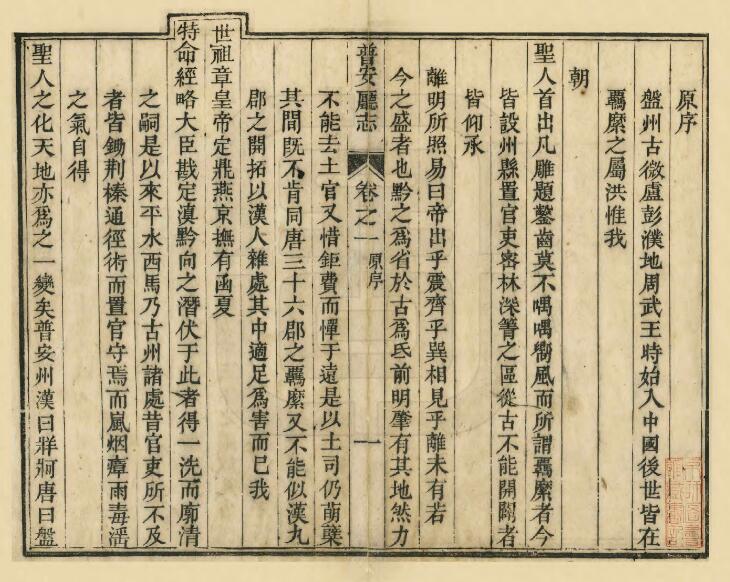 原序
盤州古微盧彭濮地周武王時始入中國後世皆在
羈縻之屬洪惟我
朝
聖人首出凡雕題鑿齒莫不喁喁嚮風而所謂羈縻者今
皆設州縣置官吏密林深箐之區從古不能開闢者
皆仰承
離明所照易曰帝出乎震齊乎巽相見乎離未有若
今之盛者也黔之為省於古為氐前明肇有其地然力
普安廳志 卷之一 原序 一
不能去土官又惜鉅費而憚于遠是以土司仍萌蘖
其間既不肯同唐三十六郡之羈縻又不能似漢九
郡之開拓以漢人雜處其中適足為害而已我
世祖章皇帝定鼎燕京撫有函夏
特命經略大臣戡定滇黔向之潛伏于此者得一洗而廓清
之嗣是以來平水西馬乃古州諸處昔官吏所不及
者皆鋤荆榛通徑術而置官守焉而嵐烟瘴雨毒淫
之氣自得
聖人之化天地亦為之一變矣普安州漢曰牂牁唐曰盤